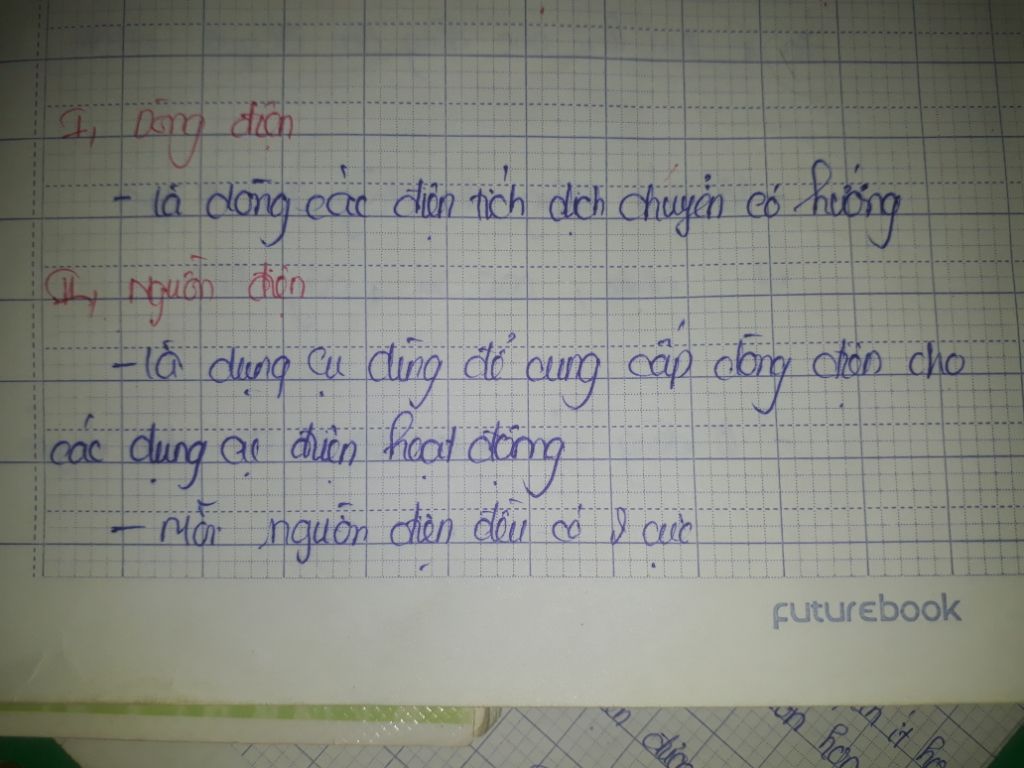 I, Dòng điện
- là dòng các điện tích dịch chuyển có hướng
II, Nguồn điện
- là dụng cụ dùng để cung cấp dòng điện cho
các dụng cụ điện hoạt động
- Mỗi nguồn điện đều có 2 cực
futurebook